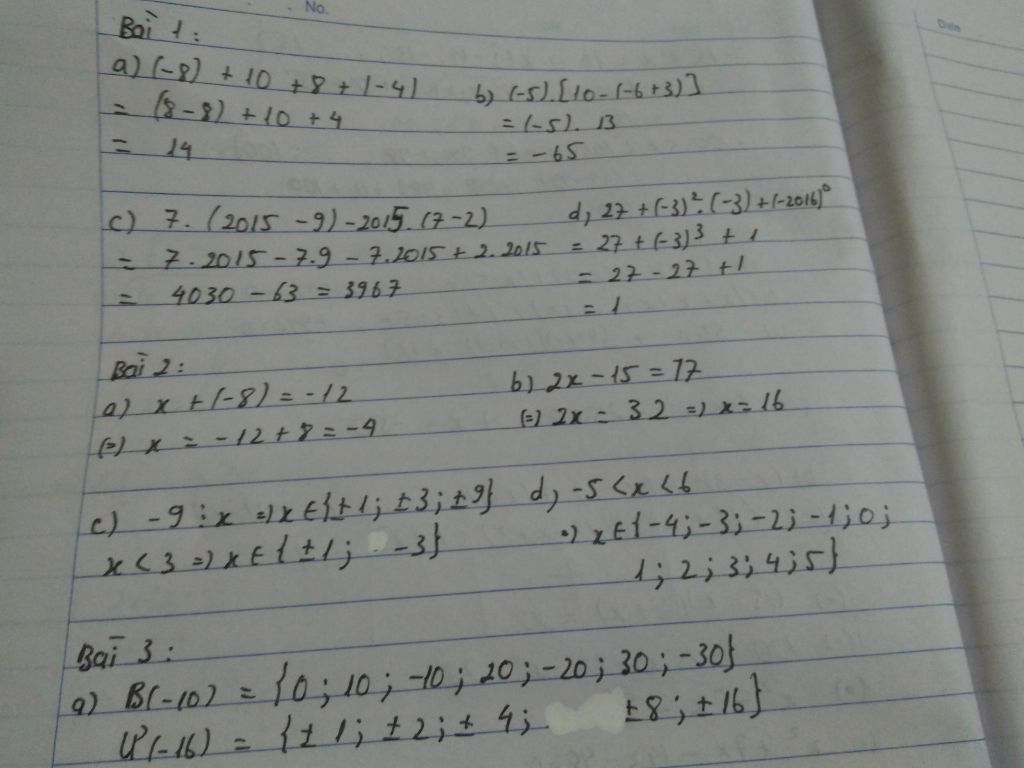 No.
Date
Bài 1:
a) (-8) + 10 + 8 + |-4|
= (8-8) + 10 + 4
= 14
b) (-5).[10-(-6+3)]
= (-5). 13
= -65
c) 7. (2015 - 9) - 2015. (7-2)
= 7.2015 - 7.9 - 7.2015 + 2.2015
= 4030 - 63 = 3967
d, 27 + (-3)². (-3) + (-2016)⁰
= 27 + (-3)³ + 1
= 27 - 27 + 1
= 1
Bài 2:
a) x + (-8) = -12
(=) x = -12 + 8 = -4
b) 2x - 15 = 17
(=) 2x = 32 => x = 16
c) -9 ⋮ x => x ∈ {±1; ±3; ±9}
x < 3 => x ∈ {±1; -3}
d, -5 < x < 6
=> x ∈ {-4; -3; -2; -1; 0;
1; 2; 3; 4; 5}
Bài 3:
a) B(-10) = {0; 10; -10; 20; -20; 30; -30}
Ư(-16) = {±1; ±2; ± 4; ±8; ±16}